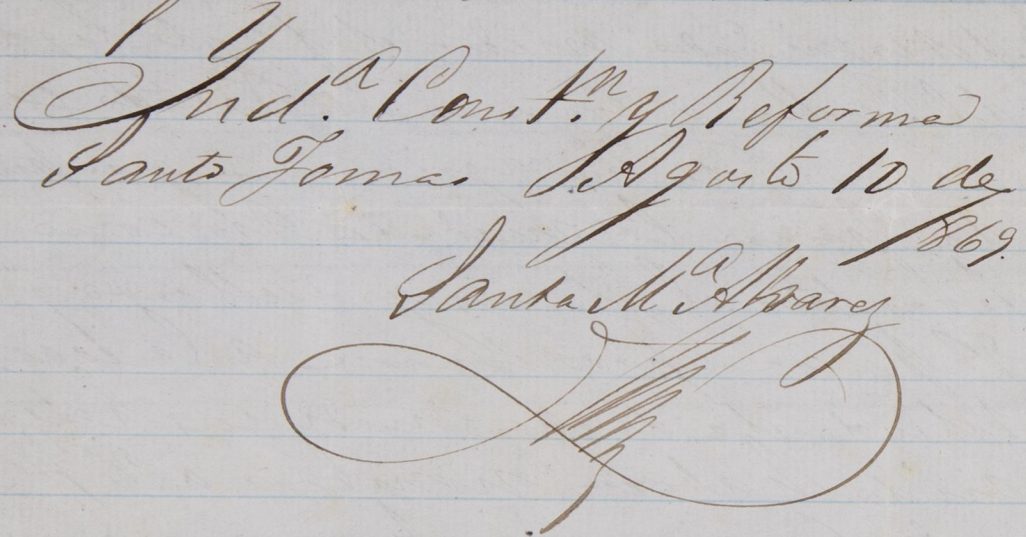 Ind.a Const.n y Reforma
Santo Tomas Agosto 10 de
1869.
Santa Ma Alvarez